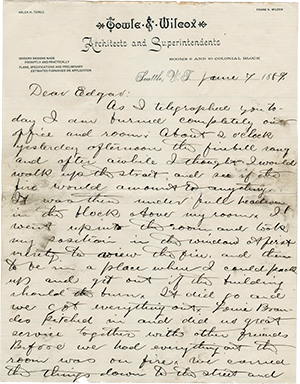 ARLEN H. TOWLE
FRANK S. WILCOX
Towle & Wilcox
Architects and Superintendents
MODERN DESIGNS MADE
PROMPTLY AND PRACTICALLY
PLANS, SPECIFICATIONS AND PRELIMINARY
ESTIMATES FURNISHED ON APPLICATION.
ROOMS 9 AND 10 COLONIAL BLOCK
Seattle, W.T. June 7 1889.
Dear Edgar:
As I telegraphed you to-
day I am burned completely out
office and room. About 2 oclock
yesterday afternoon the firebell rang
and after awhile I thought I would
walk up the street and see if the
fire would amount to anything.
It was then under full headway
in the block above my rooms. I
went up into the room and took
my position in the window at first
to view the fire, and then
to be in a place where I could pack
up and get out if the building
should burn. It did go and
we got everything out. Louie
pitched in and did us great
service together with other friends
Before we had everything out the
room was on fire. We carried
the things down to the street and